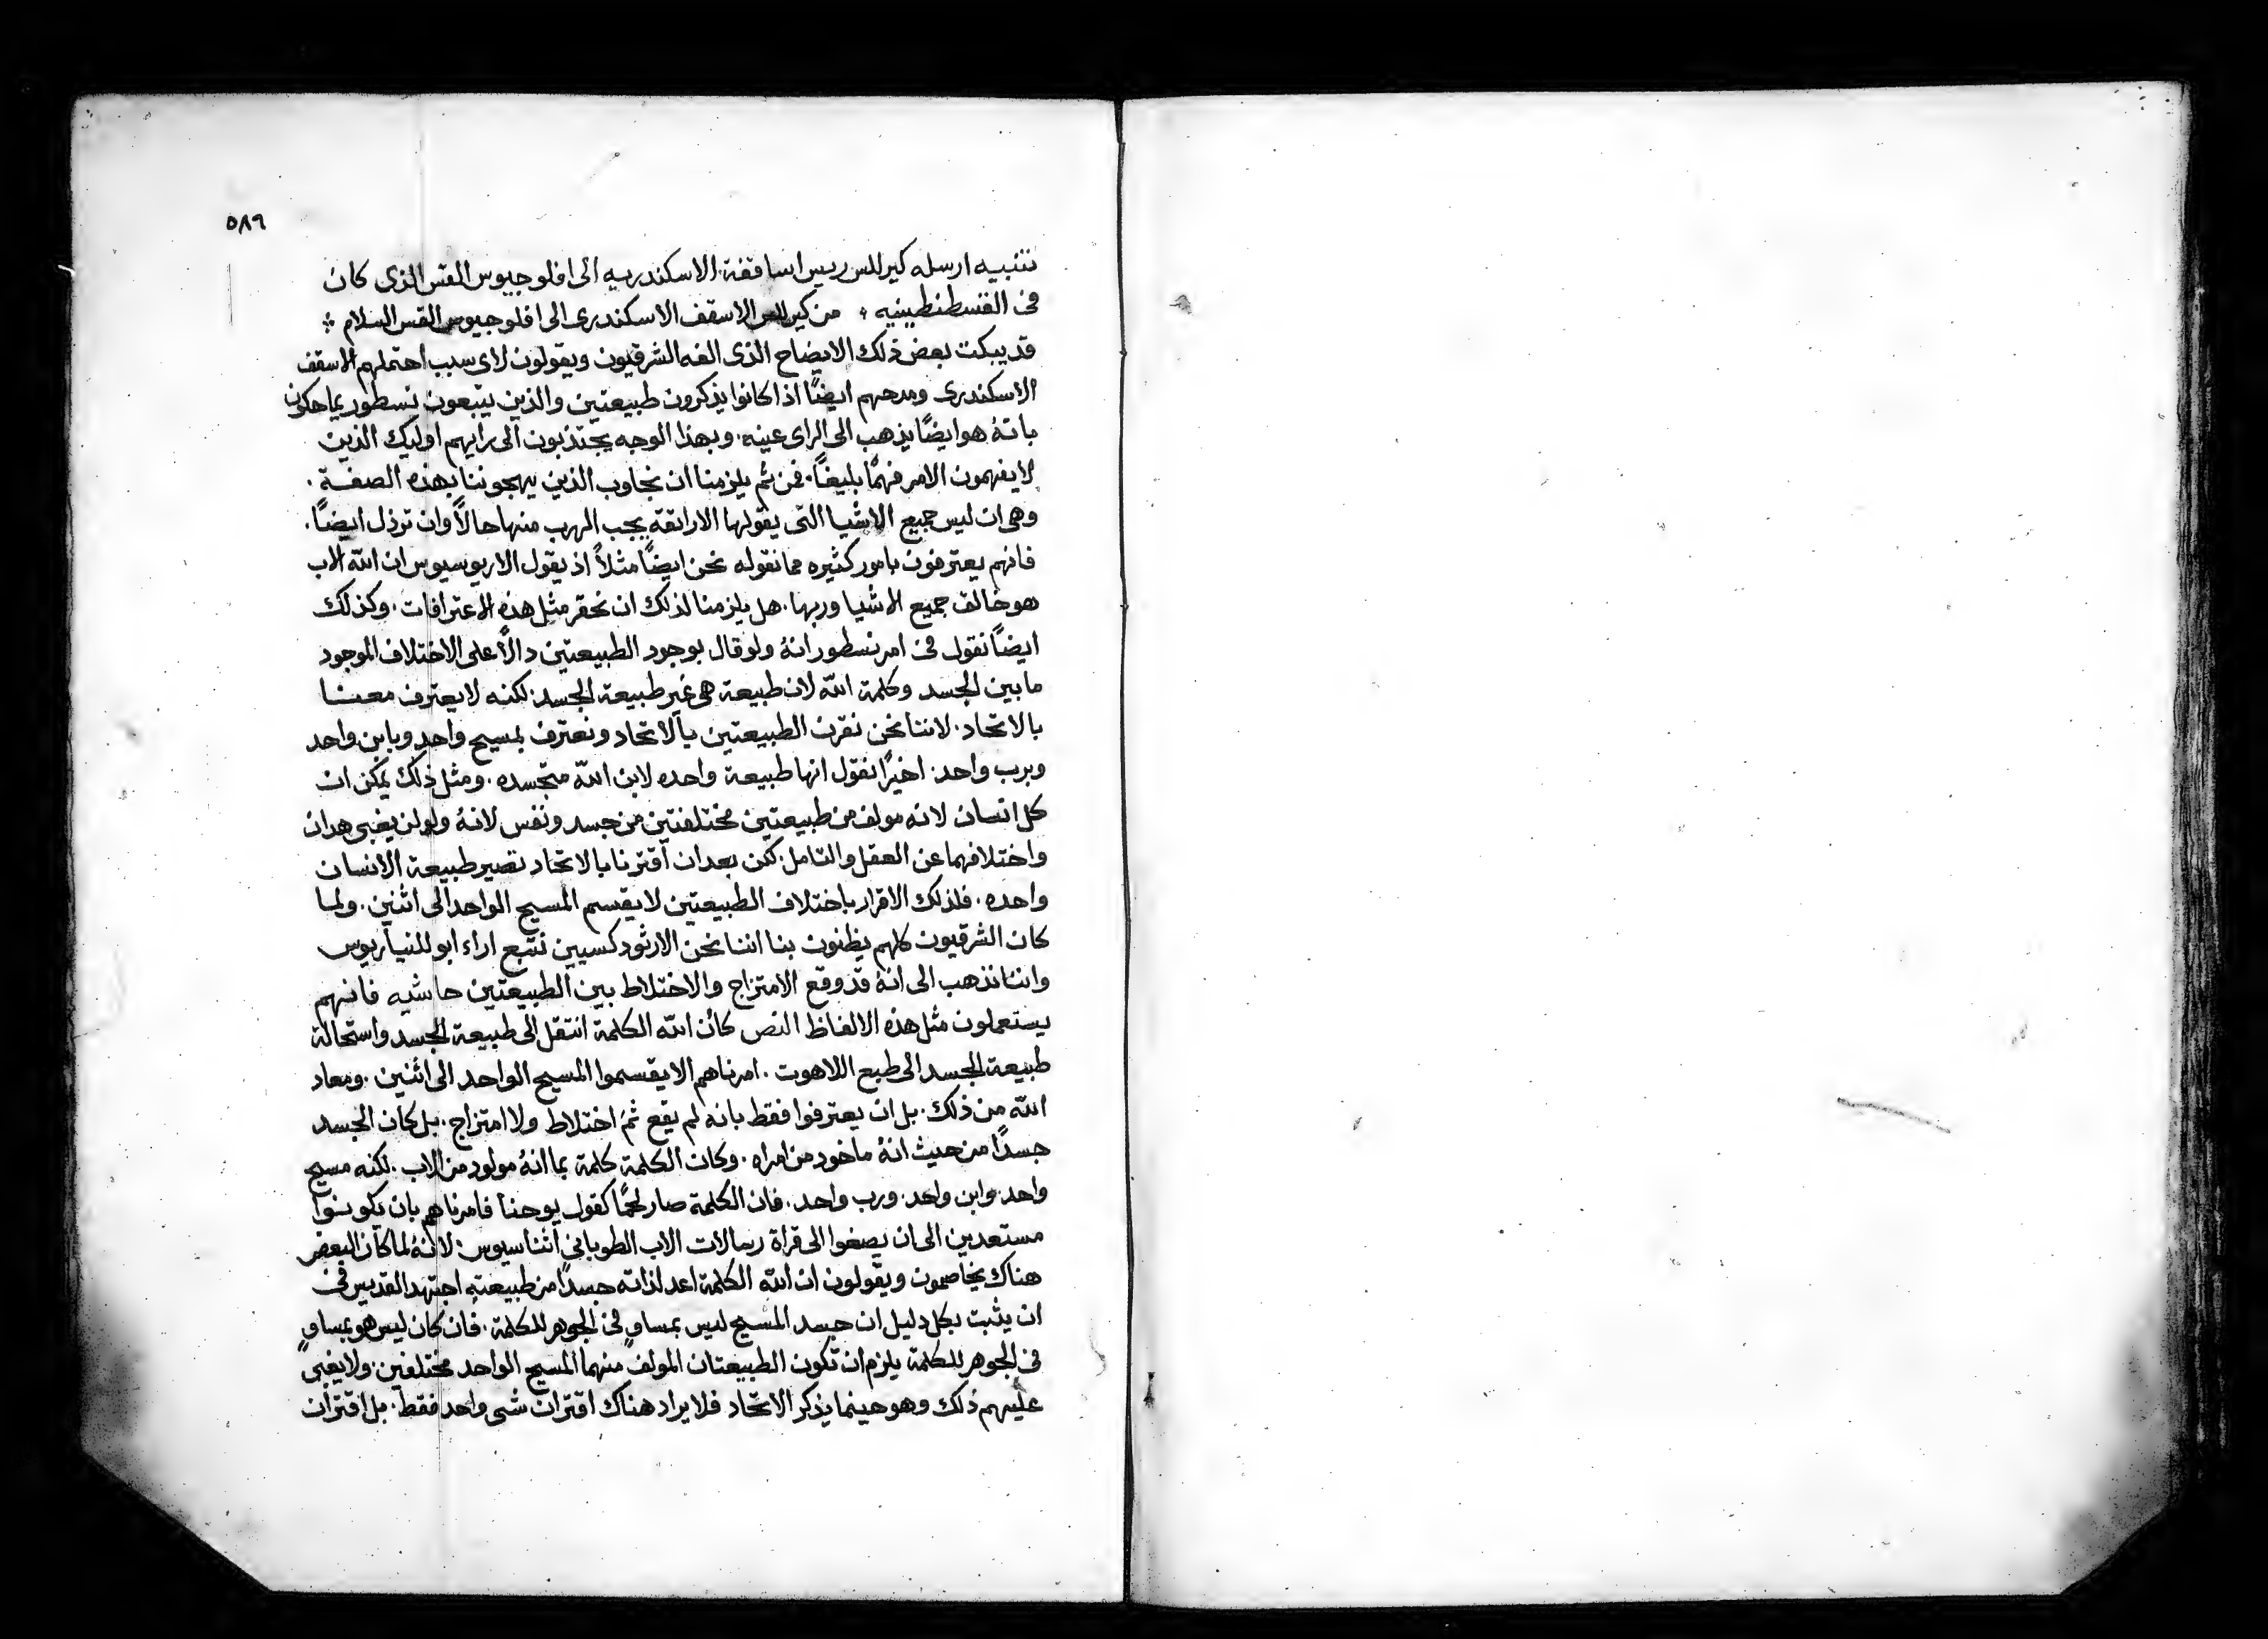 ٥٨٦
تنبيه ارسله كيرللس ريس اساقفة الاسكندريه الى افلوجيوس القس الذى كان
فى القسطنطينيه ؞ من كيرللس الاسقف الاسكندرى الى افلوجيوس القس السلام ؞
قد يبكت بعض ذلك الايضاح الذى الفه الشرقيون ويقولون لاى سبب احتملهم الاسقف
الاسكندرى ومدحهم ايضًا اذا كانوا يذكرون طبيعتين والذين يتبعون نسطور يماحكون
بانهُ هو ايضًا يذهب الى الراى عينه. وبهذا الوجه يجتذبون الى رايهم اوليك الذين
لا يفهمون الامر فهمًا بليغًا. فمن ثم يلزمنا ان نجاوب الذين يهجوننا بهذه الصفة.
وهى ان ليس جميع الاشيا التى يقولها الاراتقة يجب الهرب منها حالاً وان ترذل ايضًا.
فانهم يعترفون بامور كثيره مما نقوله نحن ايضًا مثلاً اذ يقول الاريوسيوس ان الله الاب
هو خالق جميع الاشيا وربها. هل يلزمنا لذلك ان نحقر مثل هذه الاعترافات. وكذلك
ايضًا نقول فى امر نسطور انهُ ولو قال بوجود الطبيعتين دالاً على الاختلاف الموجود
ما بين الجسد وكلمة الله لان طبيعة هى غير طبيعة الجسد. لكنه لا يعترف معنا
بالاتحاد. لاننا نحن نقرن الطبيعتين بالاتحاد ونعترف بمسيح واحد وبابن واحد
وبرب واحد. اخيرًا نقول انها طبيعة واحده لابن الله متجسده. ومثل ذلك يمكن ان
كل انسان لانه مولف من طبيعتين مختلفتين من جسد ونفس لانهُ ولو لن يغبى هدان
واختلافهما عن العقل والتامل. لكن بعد ان اقترنا بالاتحاد تصير طبيعة الانسان
واحده. فلذلك الاقرار باختلاف الطبيعتين لا يقسم المسيح الواحد الى اثنين. ولما
كان الشرقيون كلهم يظنون بنا اننا نحن الارثودكسيين نتبع اراء ابوللنياريوس
واننا نذهب الى انهُ قد وقع الامتزاج والاختلاط بين الطبيعتين حاشيه فانهم
يستعملون مثل هذه الالفاظ النص كأن الله الكلمة انتقل الى طبيعة الجسد واستحالة
طبيعة الجسد الى طبع اللاهوت. امرناهم الا يقسموا المسيح الواحد الى اثنين. ومعاد
الله من ذلك. بل ان يعترفوا فقط بانه لم يقع ثم اختلاط ولا امتزاج. بل كان الجسد
جسدًا من حيث انهُ ماخود من امراه. وكان الكلمة كلمة بما انهُ مولود من الاب. لكنه مسيح
واحد وابن واحد. ورب واحد. فان الكلمة صار لحمًا كقول يوحنا فامرناهم بان يكونوا
مستعدين الى ان يصغوا الى قراة رسالات الاب الطوبانى اثناسيوس: لانهُ لما كان البعض
هناك يخاصمون ويقولون ان الله الكلمة اعد لذاته جسدًا من طبيعته اجتهد القديس فى
ان يثبت بكل دليل ان جسد المسيح ليس بمساوٍ فى الجوهر للكلمة. فان كان ليس هو بمساوٍ
فى الجوهر للكلمة يلزم ان تكون الطبيعتان المولف منهما المسيح الواحد مختلفين. ولا يغبى
عليهم ذلك وهو حينما يذكر الاتحاد فلا يراد هناك اقتران شى واحد فقط. بل اقتران